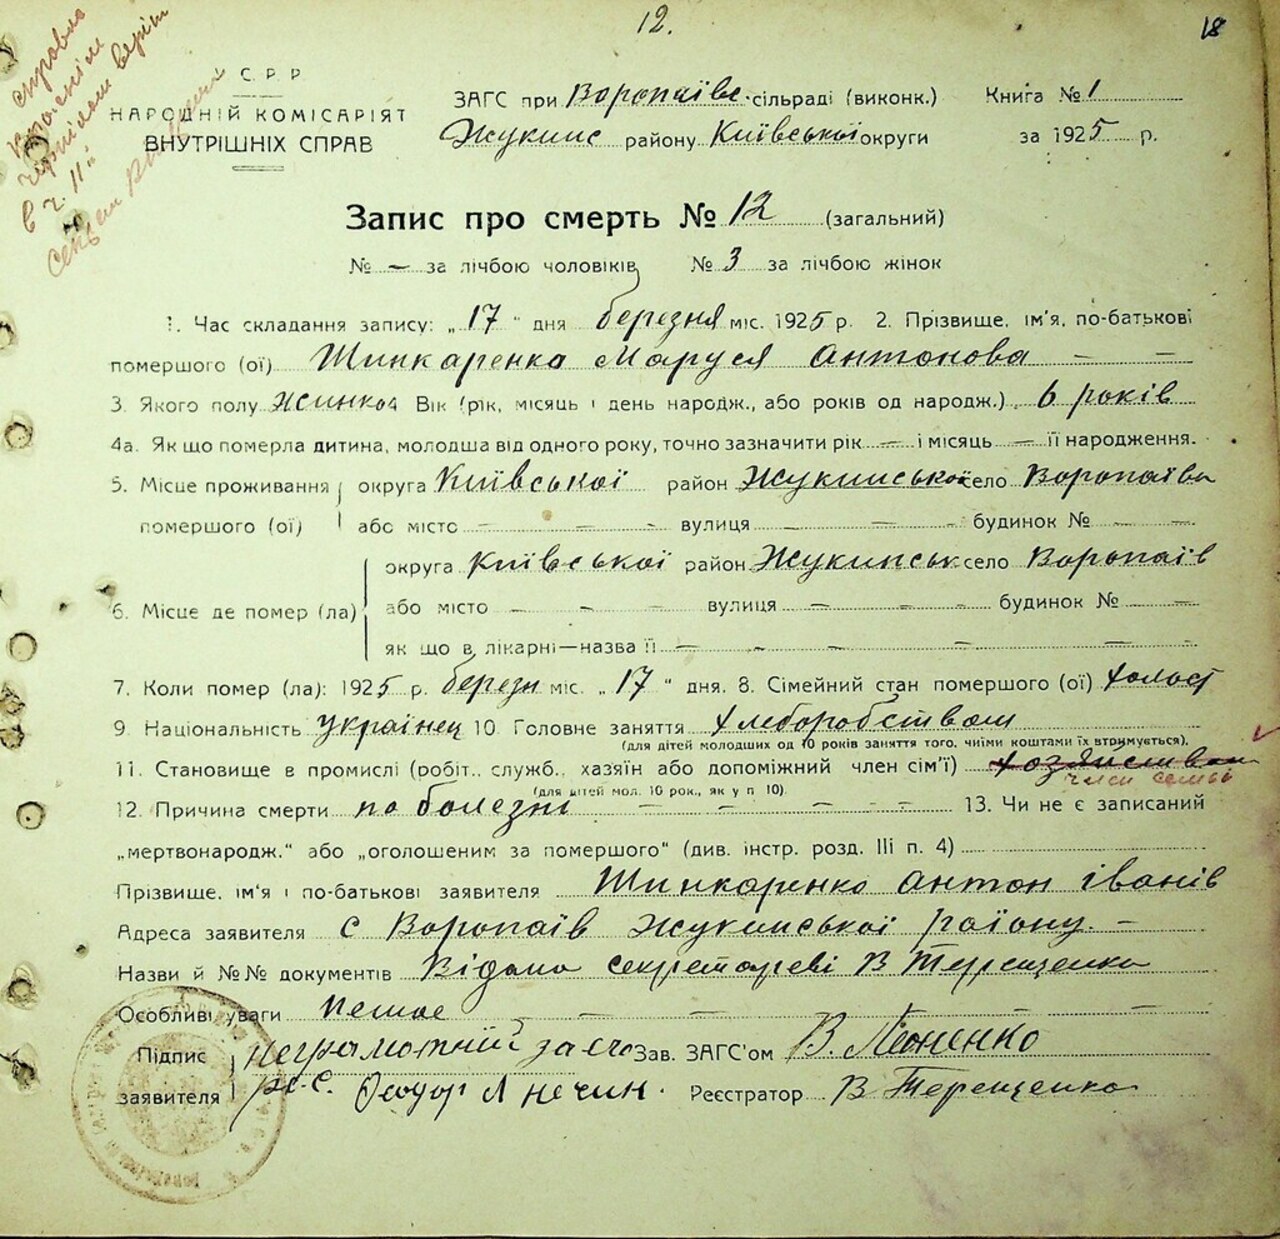 12.
18
С. Р. Р.
НАРОДНІЙ КОМІСАРІЯТ
ВНУТРІШНІХ СПРАВ
ЗАГС при Воропаївс. сільраді (виконк.) Книга № 1
Жукинс району Київської округи за 1925 р.
Запис про смерть № 12 (загальний)
№ — за лічбою чоловіків № 3 за лічбою жінок
1. Час складання запису: „17" дня березня міс. 1925 р. 2. Прізвище, ім'я, по-батькові
помершого (ої) Шинкаренко Маруся Антонова — —
3. Якого полу Жинкоа Вік (рік, місяць і день народж., або років од народж.) 6 років
4а. Як що померла дитина, молодша від одного року, точно зазначити рік — і місяць — її народження.
5. Місце проживання округа Київської район Жукинської село Воропаїва
помершого (ої) або місто — — — вулиця — — — будинок № — —
округа Київської район Жукинськ село Воропаїв
6. Місце де помер (ла) або місто — — — вулиця — — — будинок № — —
як що в лікарні—назва її — — — — — — —
7. Коли помер (ла): 1925 р. березн міс. „17" дня. 8. Сімейний стан помершого (ої) холост
9. Національність українец 10. Головне заняття хлеборобством
(для дітей молодших од 10 років заняття того, чиїми коштами їх втримується).
11. Становище в промислі (робіт., служб., хазяїн або допоміжний член сім'ї) хозяиством
член семьи
(для дітей мол. 10 рок., як у п 10).
12. Причина смерти по болезні — — — — — 13. Чи не є записаний
„мертвонародж." або „оголошеним за помершого" (див. інстр. розд. III п. 4)
Прізвище, ім'я і по-батькові заявителя Шинкаренко Антон Іванів
Адреса заявителя с Воропаїв Жукинської району —
Назви й №№ документів Відомо секретареві В Терещенко
Особливі уваги Немає — — — — — —
Підпис неграмотній за его Зав. ЗАГС'ом В. Леоненко
заявителя рос. Феодор Реєстратор В Терещенко